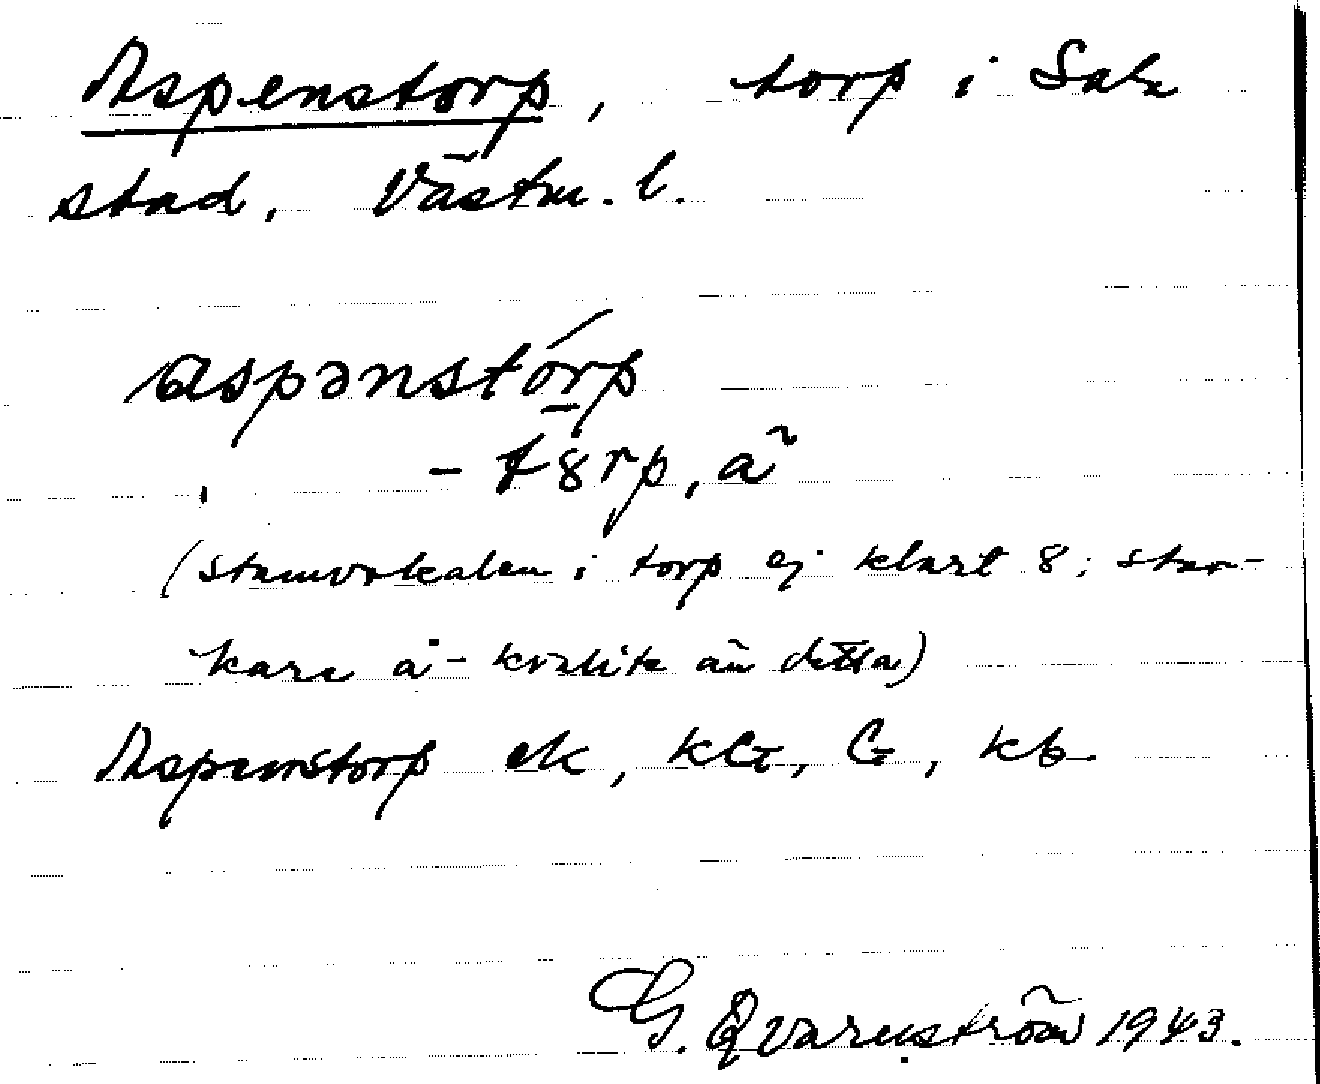 Aspenstorp, torp i Sala
stad, Västm. l.
aspənstórp
- t8rp, ã
(stamvokalen i torp ej klart 8; star-
kare å- kvalité än detta)
Aspenstorp ek, kG, G, kb
G. Qvarnström 1943.